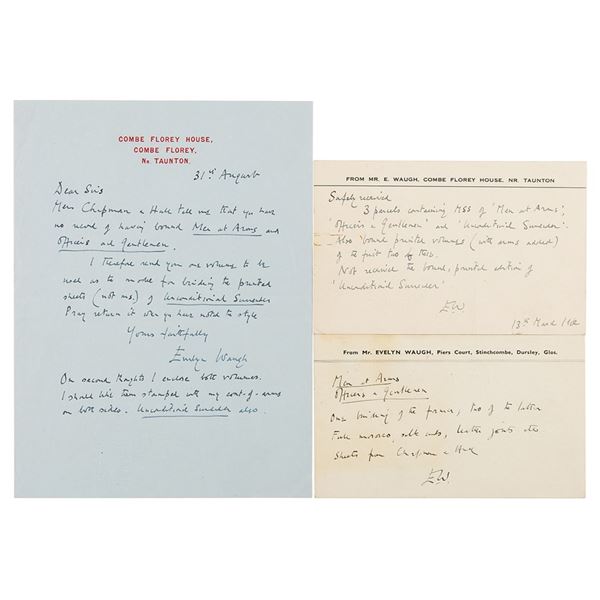 COMBE FLOREY HOUSE,
COMBE FLOREY,
NR TAUNTON.
31st August
Dear Sirs
Messrs Chapman & Hall tell me that you have
no record of having bound Men at Arms and
Officers and Gentlemen.
I therefore send you one volume to be
used as the model for binding the printed
sheets (not ms.) of Unconditional Surrender
Pray return it when you have noted the style
Yours faithfully
Evelyn Waugh
On second thoughts I enclose both volumes.
I should like them stamped with my coat-of-arms
on both sides. Unconditional Surrender also.
FROM MR. E. WAUGH, COMBE FLOREY HOUSE, NR. TAUNTON
Safely received
3 parcels containing MSS of 'Men at Arms',
'Officers & Gentlemen' and 'Unconditional Surrender'.
Also bound printed volumes (with arms added)
of the first two of these.
Not received the bound, printed edition of
'Unconditional Surrender'
EW
13th March
From Mr. EVELYN WAUGH, Piers Court, Stinchcombe, Dursley, Glos.
Men at Arms
Officers & Gentlemen
One binding of the former, two of the latter
Full morocco, silk ends, leather joints etc
Sheets from Chapman & Hall
E.W.